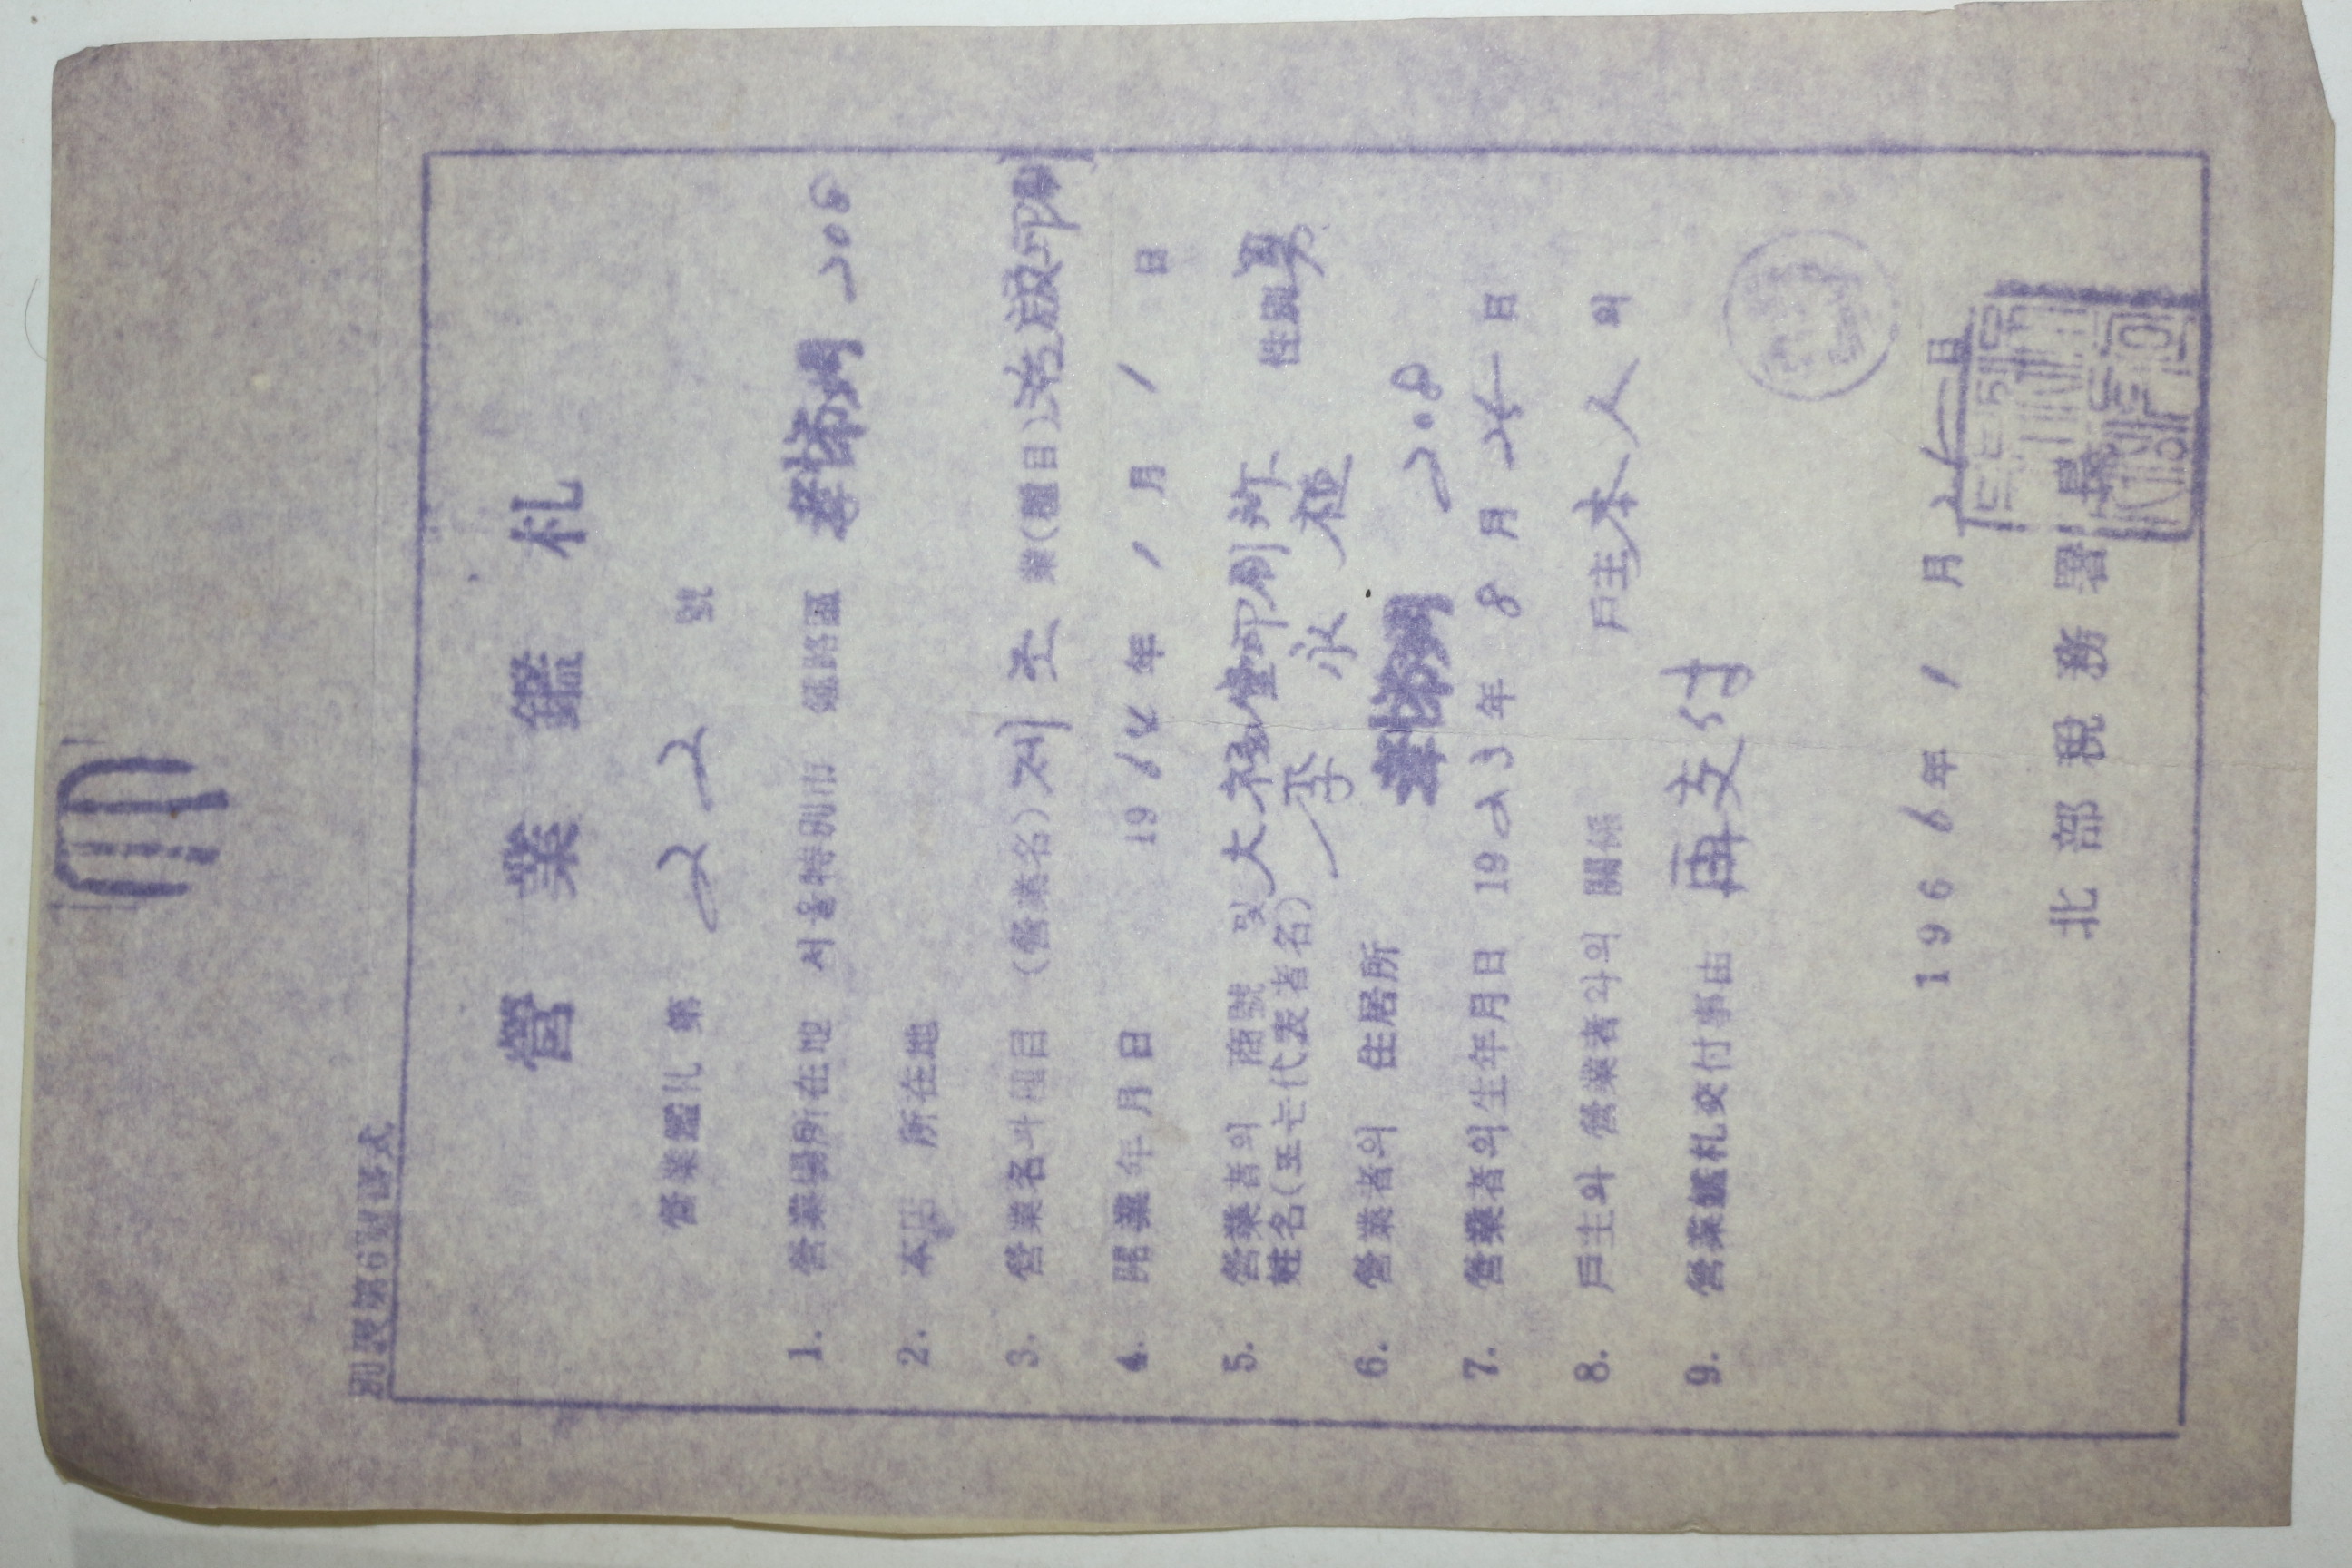 別設第6號書式
營業鑑札
營業鑑札 第 22 號
1. 營業場所所在地 서울特別市 鍾路區 208
2. 本店 所在地
3. 營業名과種目 (營業名) 제조 業(種目) 活版印刷
4. 開業年月日 1964年 1月 1日
5. 營業者의 商號 및 大福堂印刷所 性別 男
姓名(또는代表者名) 李永植
6. 營業者의 住居所 208
7. 營業者의生年月日 1923年 8月 25日
8. 戶主와 營業者와의 關係 戶主 本人 의
9. 營業鑑札交付事由 再交付
1966年 1月 日
北部稅務署長